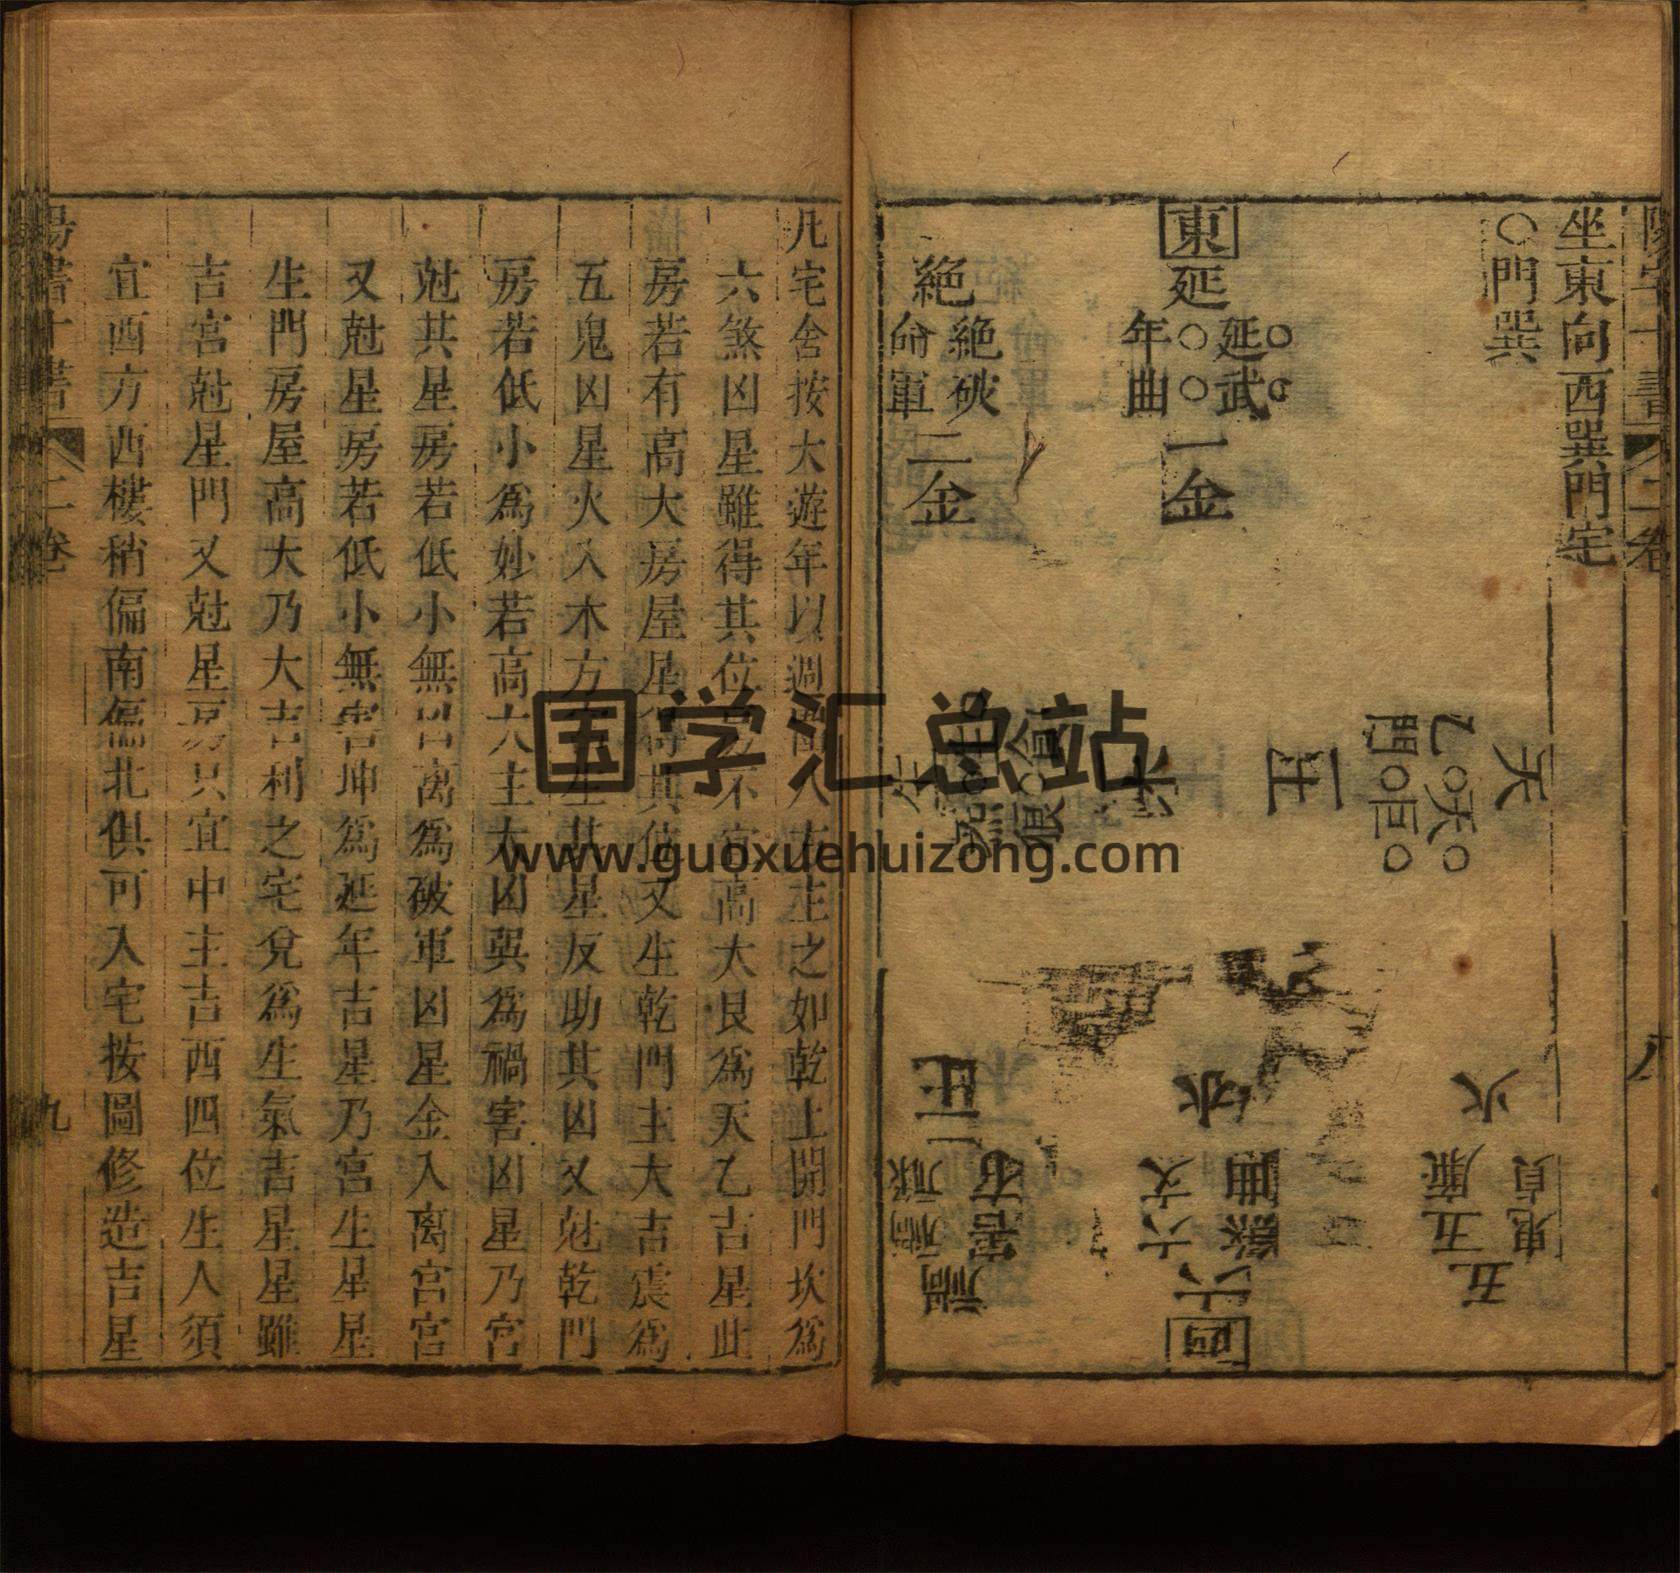 坐東向西巽門宅
○門巽
東
延
延武
年曲
一金
絶
絶破
命軍
二金
天
乙天
門巨
土
木
生
水
六
文曲
六煞
西
火
廉貞
五鬼
五
土
祿存
禍害
禍
凢宅舎按大遊年以週
主之如乾上開門坎爲
六煞凶星雖得其位
不宜高大艮爲天乙吉星此
房若有高大房屋星得其位又生乾門主大吉震爲
五鬼凶星火入木方
其星反助其凶又尅乾門
房若低小爲妙若高大主大凶巽爲禍害凶星乃宮
尅其星房若低小無
离爲破軍凶星金入离宮宮
又尅星房若低小無害坤爲延年吉星乃宮生星星
生門房屋高大乃大吉利之宅兌爲生氣吉星星雖
吉宮尅星門又尅星房只宜中主吉西四位生人須
宜西方西樓稍偏南偏北俱可入宅按圖修造吉星
二卷
九
国学汇总站
www.guoxuehuizong.com